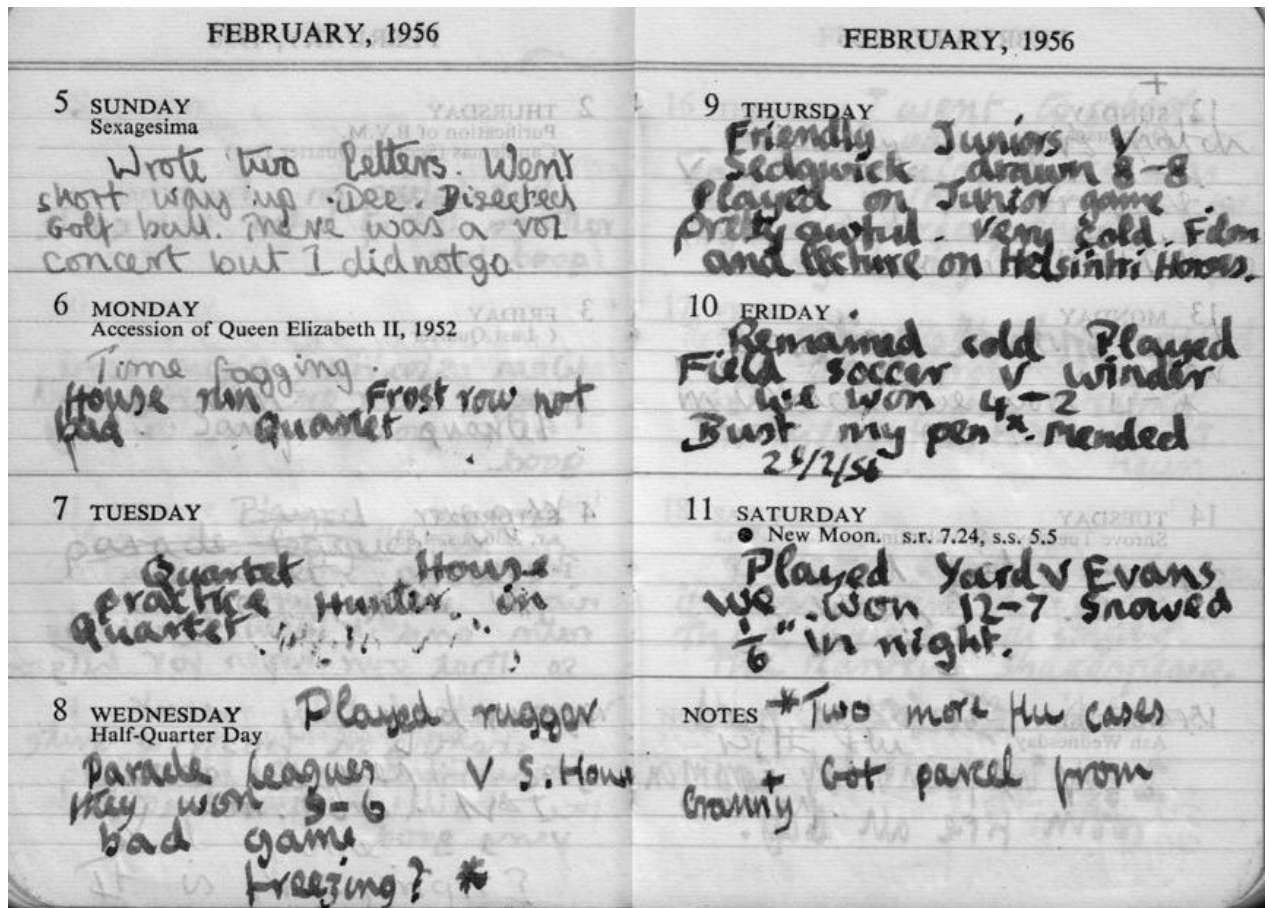 FEBRUARY, 1956
5 SUNDAY
Sexagesima
Wrote two letters. Went
short way up Dee. Disected
Golf ball. There was a vol
concert but I did not go
6 MONDAY
Accession of Queen Elizabeth II, 1952
Time fagging.
House run Frost row not
bad Quartet
7 TUESDAY
Quartet House
practice Hunter in
Quartet
8 WEDNESDAY Played rugger
Half-Quarter Day
Parade Leagues V S. House
they won 9-6
bad game
freezing? *
FEBRUARY, 1956
9 THURSDAY
Friendly Juniors V
Sedgwick drawn 8-8
Played on Junior game
pretty awful. Very cold. Film
and lecture on Helsinki Horses.
10 FRIDAY
Remained cold Played
Field soccer v Winder
We won 4-2
Bust my pen x. Mended
/2/56
11 SATURDAY
New Moon. s.r. 7.24, s.s. 5.5
Played Yard v Evans
We won 12-7 Snowed
1/6" in night.
NOTES * Two more flu cases
+ Got parcel from
Granny